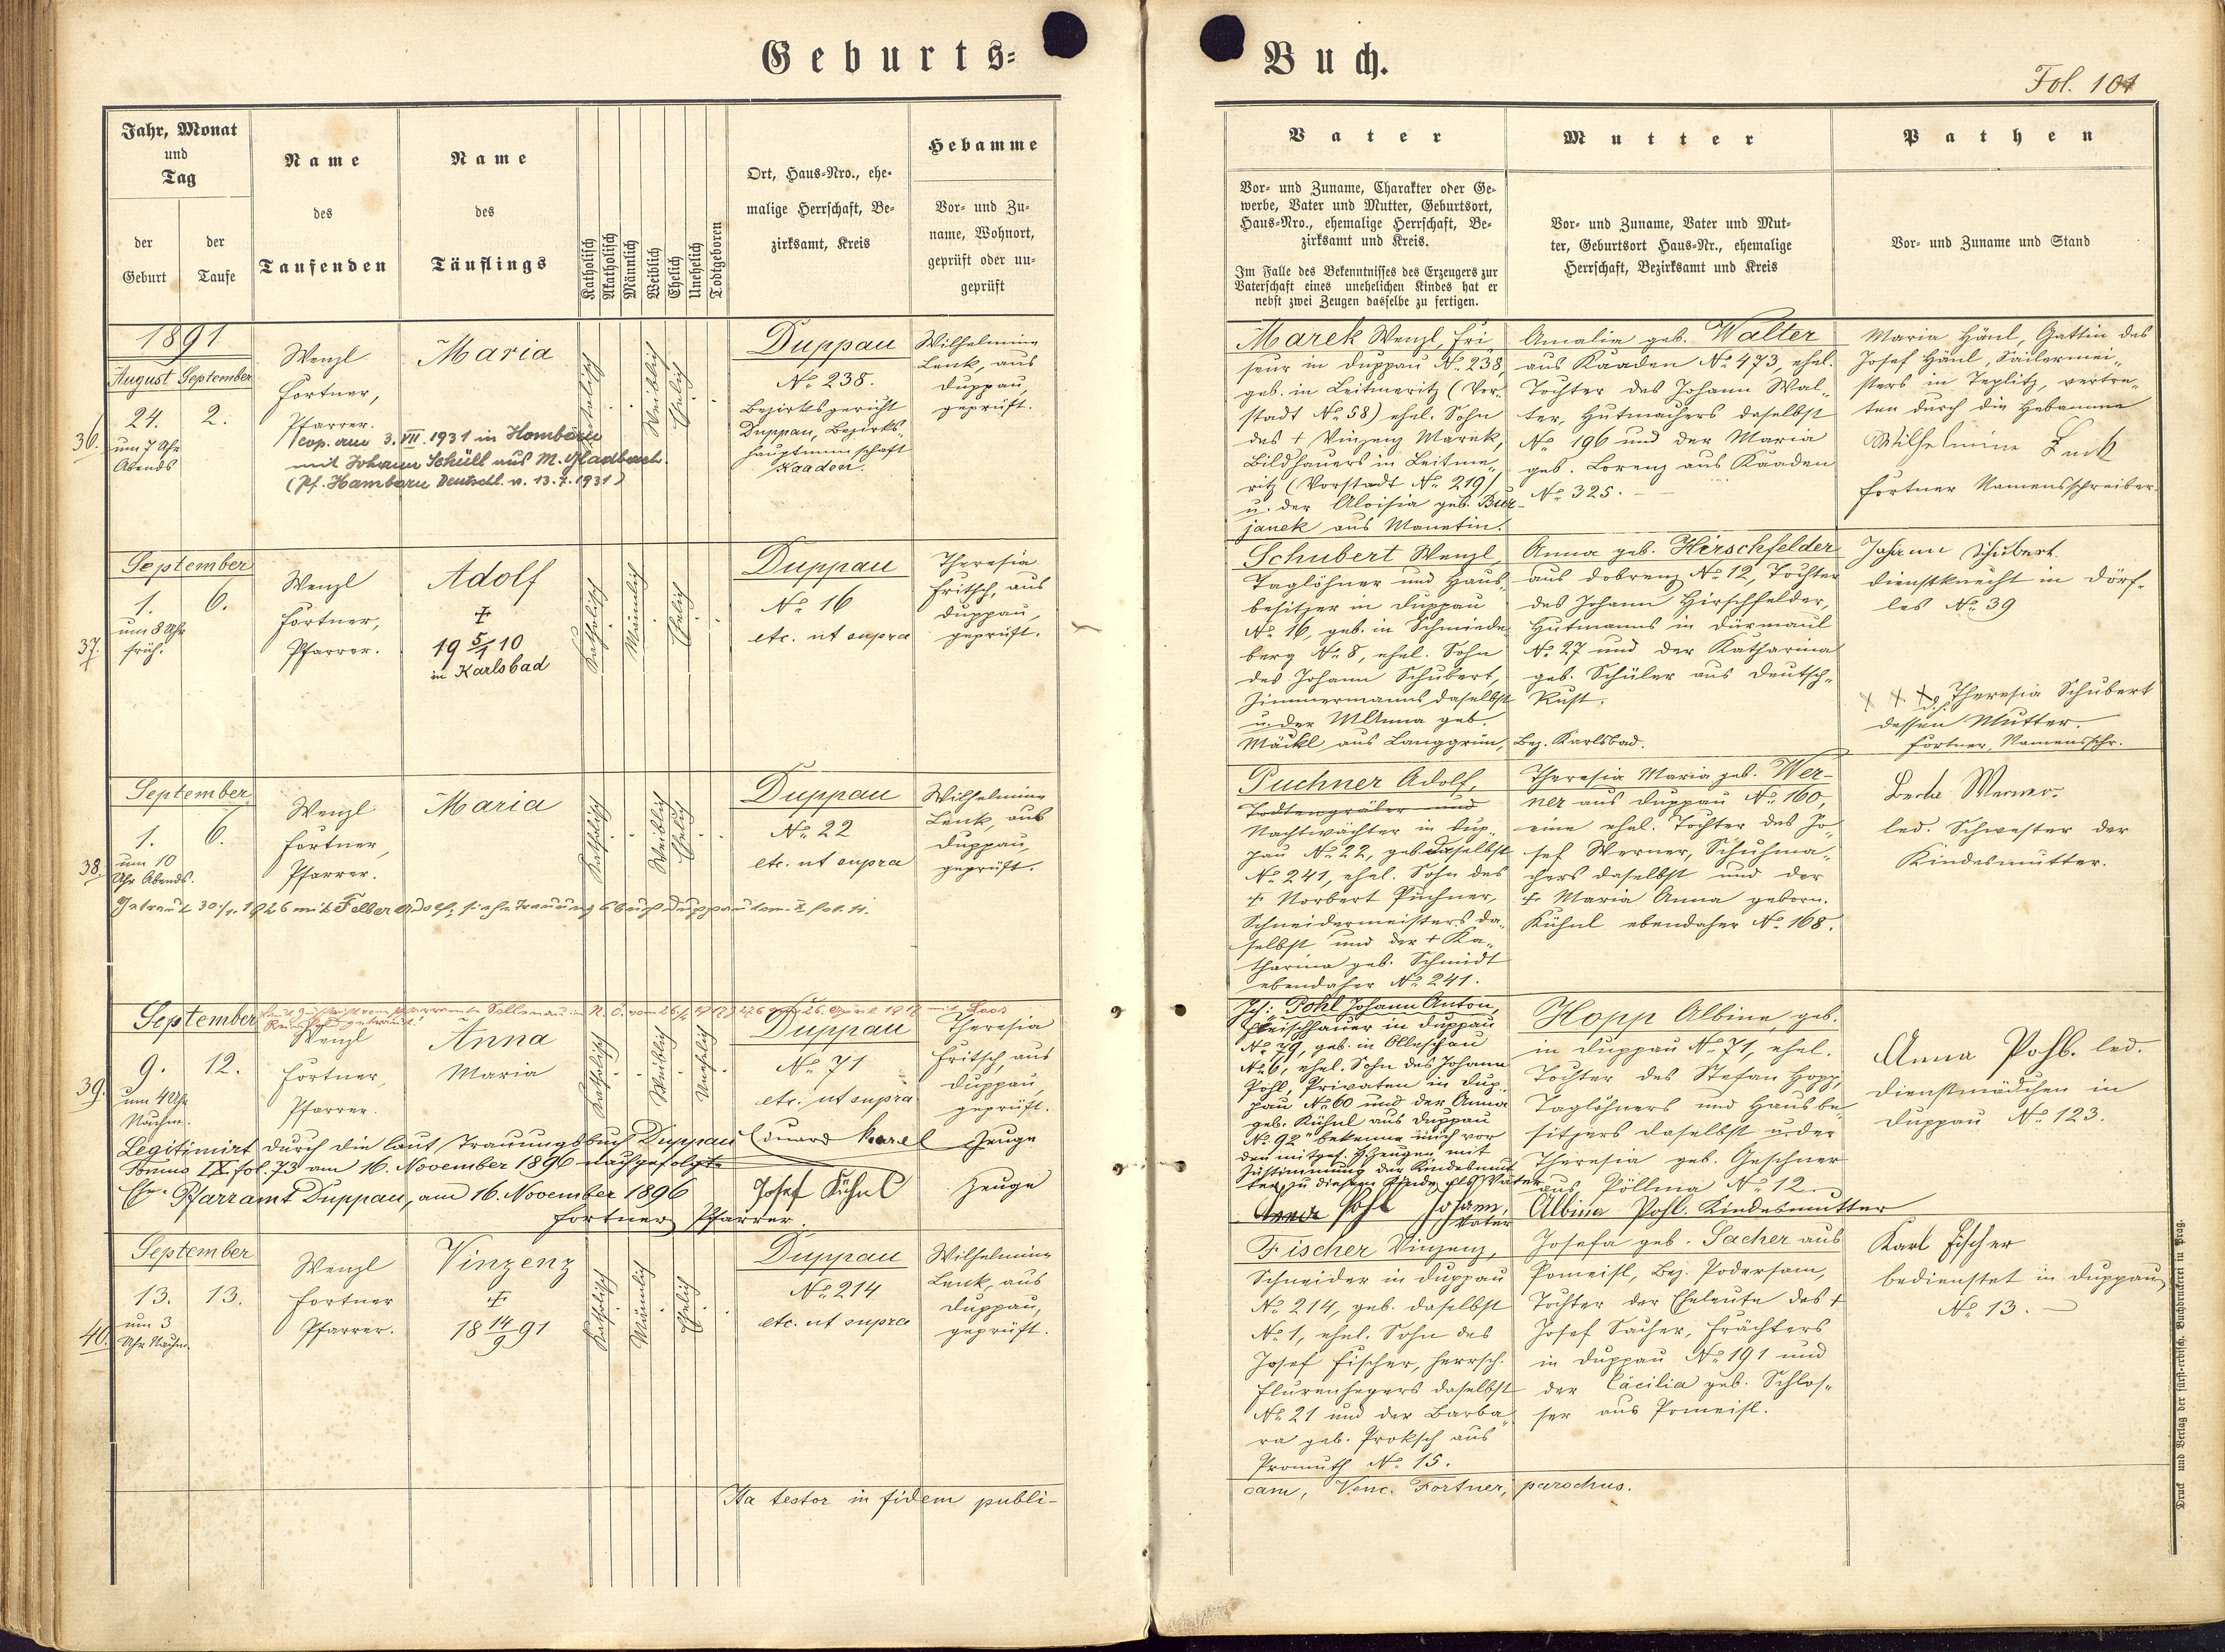 Geburts=
Buch.
Fol. 101
Jahr, Monat
und
Tag
der
Geburt
der
Taufe
Name
des
Taufenden
Name
des
Täuflings
Katholisch
Akatholisch
Männlich
Weiblich
Ehelich
Unehelich
Todtgeboren
Ort, Haus=Nro., ehe=
malige Herrschaft, Be=
zirksamt, Kreis
Hebamme
Vor= und Zu=
name, Wohnort,
geprüft oder un=
geprüft
Vater
Vor= und Zuname, Charakter oder Ge=
werbe, Vater und Mutter, Geburtsort,
Haus=Nro., ehemalige Herrschaft, Be=
zirksamt und Kreis.
Im Falle des Bekenntnisses des Erzeugers zur
Vaterschaft eines unehelichen Kindes hat er
nebst zwei Zeugen dasselbe zu fertigen.
Mutter
Vor= und Zuname, Vater und Mut=
ter, Geburtsort Haus=Nr., ehemalige
Herrschaft, Bezirksamt und Kreis
Pathen
Vor= und Zuname und Stand
36.
1891
August September
24. 2.
um 7 Uhr
Abends
Wenzl
Fortner,
Pfarrer.
Maria
cop. am 3. VII. 1931 in Hamborn
mit Johann Schüll aus M. Gladbach.
(Pf. Hamborn Deutschl. v. 13.7.1931)
Katholisch
Weiblich
Ehelich
Duppau
No. 238.
Bezirksgericht
Duppau, Bezirks=
hauptmannschaft
Kaaden.
Wilhelmine
Lenk, aus
Duppau,
geprüft.
Marek Wenzl, Fri
seur in Duppau No. 238,
geb. in Leitmeritz (Vor=
stadt No. 58) ehel. Sohn
des † Vinzenz Marek,
Bildhauers in Leitme=
ritz (Vorstadt No. 219)
u. der Aloisia geb. Bur=
janek aus Manetin.
Amalia geb. Walter
aus Kaaden No. 473, ehel.
Tochter des Johann Wal=
ter, Hutmachers daselbst
No. 196 und der Maria
geb. Lorenz aus Kaaden
No. 325.
Maria Hänl, Gattin des
Josef Hänl, Sailermei=
sters in Teplitz, vertre=
ten durch die Hebamme
Wilhelmine Lenk
Fortner Namensschreiber.
37.
September
1. 6.
um 8 Uhr
früh.
Wenzl
Fortner,
Pfarrer.
Adolf
†
19 5/1 10
in Karlsbad
Katholisch
Männlich
Ehelich
Duppau
No. 16
etc. ut supra
Theresia
Fritsch, aus
Duppau,
geprüft.
Schubert Wenzl,
Taglöhner und Haus=
besitzer in Duppau
No. 16, geb. in Schmiede=
berg No. 8, ehel. Sohn
des Johann Schubert,
Zimmermanns daselbst
u. der M. Anna geb.
Mäckl aus Langgrün, Bez. Karlsbad.
Anna geb. Hirschfelder
aus Dobrenz No. 12, Tochter
des Johann Hirschfelder,
Hutmanns in Dürmaul
No. 27 und der Katharina
geb. Schüler aus Deutsch=
Rust.
Johann Schubert
Dienstknecht in Dörf=
les No. 39
Theresia Schubert
dessen Mutter.
Fortner, Namensschr.
38.
September
1. 6.
um 10
Uhr Abends.
Wenzl
Fortner,
Pfarrer.
Maria
Katholisch
Weiblich
Ehelich
Duppau
No. 22
etc. ut supra
Wilhelmine
Lenk, aus
Duppau,
geprüft.
Getraut 30./1. 1926 mit Felber Adolf, siehe Trauungsbuch Duppau tom. X fol. 11.
Puchner Adolf,
Todtengräber und
Nachtwächter in Dup=
pau No. 22, geb. daselbst
No. 241, ehel. Sohn des
† Norbert Puchner,
Schneidermeisters da=
selbst und der † Ka=
tharina geb. Schmidt
ebendaher No. 241.
Theresia Maria geb. Wer=
ner aus Duppau No. 160,
eine ehel. Tochter des Jo=
sef Werner, Schuhma=
chers daselbst und der
† Maria Anna geborn.
Kühnl ebendaher No. 168.
Berta Werner.
led. Schwester der
Kindesmutter.
39.
September
9. 12.
um 4 Uhr
Nachm.
Wenzl
Fortner,
Pfarrer.
Anna
Maria
Katholisch
Weiblich
Unehelich
Duppau
No. 71
etc. ut supra
Theresia
Fritsch, aus
Duppau,
geprüft.
Legitimirt durch die laut Trauungsbuch Duppau
Tomus IX fol. 73 am 16. November 1896 nachgefolgte
Ehe. Pfarramt Duppau, am 16. November 1896
Fortner, Pfarrer.
Eduard Karel Zeuge
Josef Kühnl Zeuge
Ich: Pohl Johann Anton,
Fleischhauer in Duppau
No. 79, geb. in Olleschau
No. 6, ehel. Sohn des Johann
Pohl, Privaten in Dup=
pau No. 60 und der Anna
geb. Kühnl aus Duppau
No. 92" bekenne mich vor
den mitgef. Zeugen mit
Zustimmung der Kindesmut
ter, zu diesem Kinde als Vater
Pohl Johann,
Vater
Hopp Albine, geb.
in Duppau No. 71, ehel.
Tochter des Stefan Hopp,
Taglöhners und Hausbe=
sitzers daselbst u. der
Theresia geb. Geschner
aus Pöllma No. 12.
Albina Pohl. Kindesmutter
Anna Pohl. led.
Dienstmädchen in
Duppau No. 123.
40.
September
13. 13.
um 3
Uhr Nachm.
Wenzl
Fortner
Pfarrer.
Vinzenz
†
18 14/9 91
Katholisch
Männlich
Ehelich
Duppau
No. 214
etc. ut supra
Wilhelmine
Lenk, aus
Duppau,
geprüft.
Fischer Vinzenz,
Schneider in Duppau
No. 214, geb. daselbst
No. 1, ehel. Sohn des
Josef Fischer, herrsch.
Flurenhegers daselbst
No. 21 und der Barba=
ra geb. Proksch aus
Promuth No. 15.
Josefa geb. Sacher aus
Pomeisl, Bez. Podersam,
Tochter der Eheleute des †
Josef Sacher, Frächters
in Duppau No. 191 und
der Cäcilia geb. Schlos=
ser aus Pomeisl.
Karl Fischer
bedienstet in Duppau
No. 13.
Ita testor in fidem publi-
cam, Venc. Fortner, parochus.
Druck und Verlag der fürst=erzbisch. Buchdruckerei in Prag.